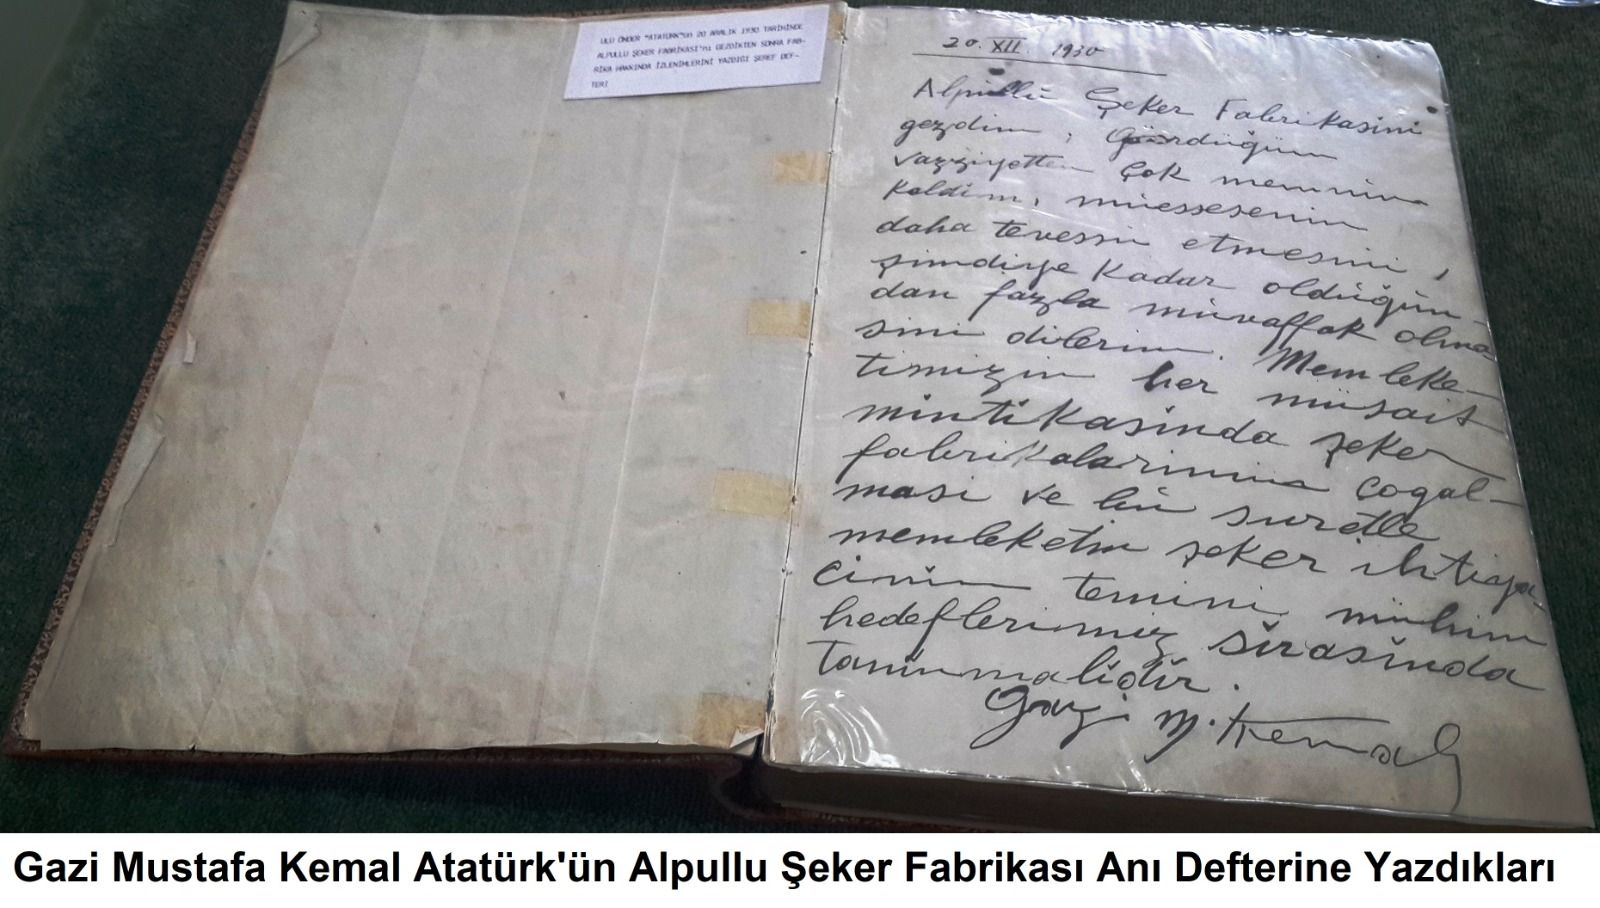 ULU ÖNDER "ATATÜRK"ün 20 ARALIK 1930 TARİHİNDE
ALPULLU ŞEKER FABRİKASI'nı GEZDİKTEN SONRA FAB-
RİKA HAKKINDA İZLENİMLERİNİ YAZDIĞI ŞEREF DEF-
TERİ
20. XII. 1930
Alpüllü Şeker Fabrikasini
gezdim; Gördüğüm
vazziyetten çok memnün
kaldim, müessesenin
daha tevessü etmesini,
şimdiye kadar oldüğün-
dan fazla müvaffak olma
sini dilerim. Memleke-
timizin her müsait
mintikasinda şeker
fabrikalarinin çogal-
masi ve bü suretle
memleketin şeker ihtiya-
cinin temini, mühim
hedeflerimiz sirasinda
taninmalidir.
Gazi M. Kemal
Gazi Mustafa Kemal Atatürk'ün Alpullu Şeker Fabrikası Anı Defterine Yazdıkları